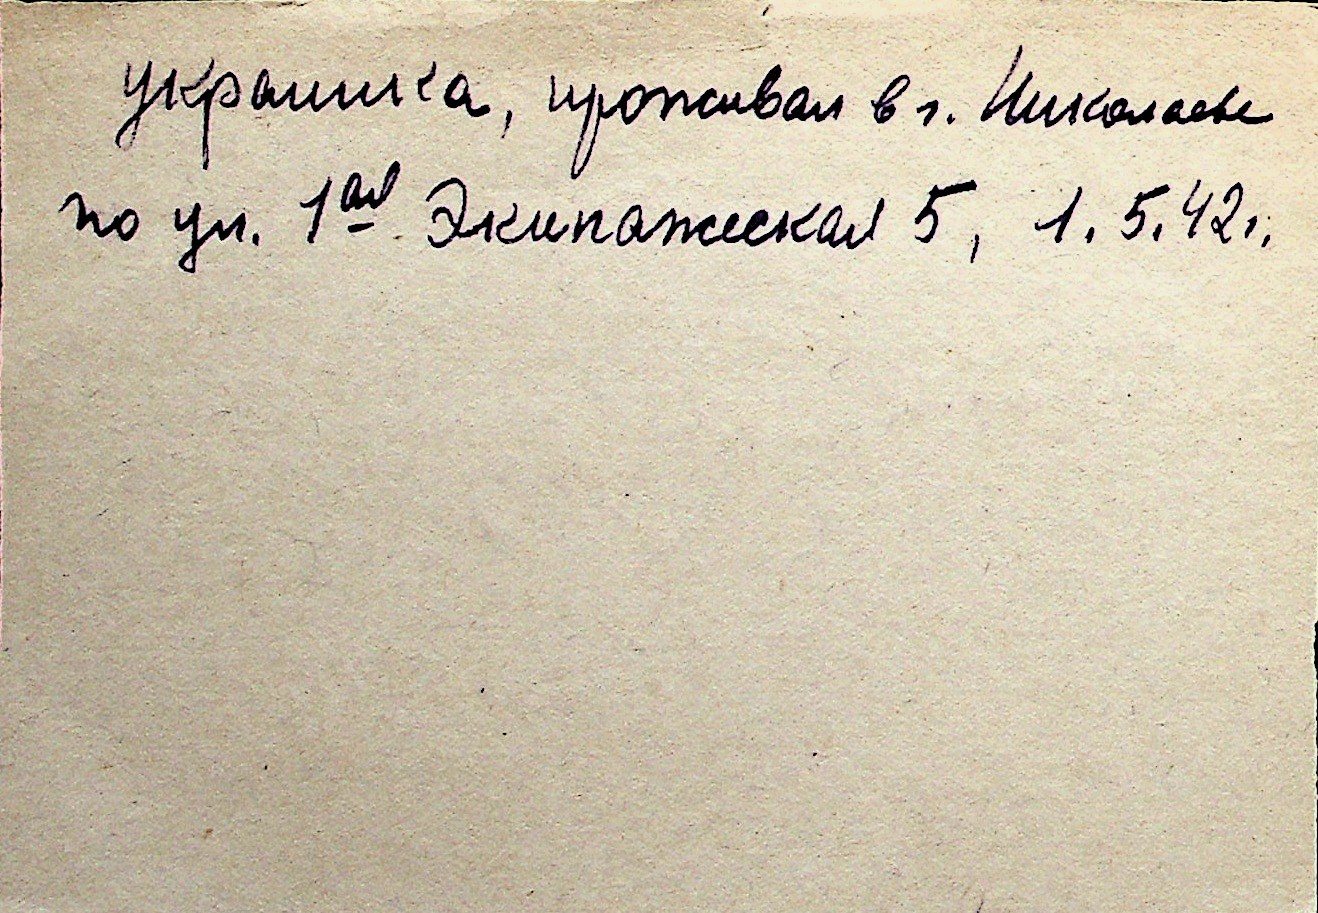 украинка, проживал в г. Николаеве
по ул. 1ая Экипажеская 5, 1.5.42г.